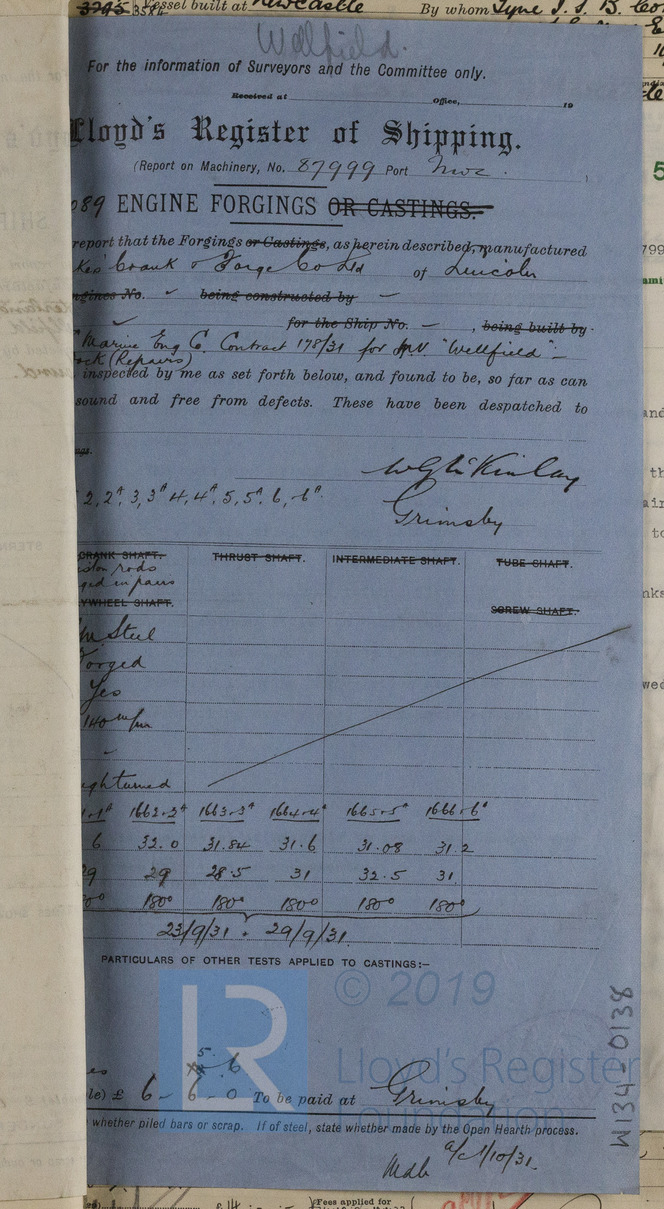 3295 3584 Vessel built at Newcastle By whom Tyne I. S. B. Co
Wellfield.
For the information of Surveyors and the Committee only.
Received at Office, 19
Lloyd's Register of Shipping.
(Report on Machinery, No. 87999 Port Nwc.
089 ENGINE FORGINGS OR CASTINGS.
report that the Forgings or Castings, as herein described, manufactured
kes' Crank & Forge Co Ltd of Lincoln
ngines No. being constructed by
for the Ship No. – , being built by
Marine Eng Co. Contract 178/31 for M.V. "Wellfield" –
ock (Repairs)
inspected by me as set forth below, and found to be, so far as can
sound and free from defects. These have been despatched to
ngs.
2, 2A, 3, 3A 4, 4A, 5, 5A, 6, 6A.
Grimsby
CRANK SHAFT. THRUST SHAFT. INTERMEDIATE SHAFT. TUBE SHAFT.
ston rods
ged in pairs
YWHEEL SHAFT. SCREW SHAFT.
Steel
Forged
Yes
ghturned
1.1A 1662.2A 1663.3A 1664.4A 1665.5A 1666.6A
6 32.0 31.84 31.6 31.08 31.2
29 29 28.5 31 32.5 31
80° 180° 180° 180° 180° 180°
23/9/31 . 29/9/31.
PARTICULARS OF OTHER TESTS APPLIED TO CASTINGS:–
© 2019
LR
Lloyd's Register
Foundation
W134-0138
5. 6
le) £ 6 - 6 - 0 To be paid at Grimsby
whether piled bars or scrap. If of steel, state whether made by the Open Hearth process.
a/c 1/10/31.
Fees applied for